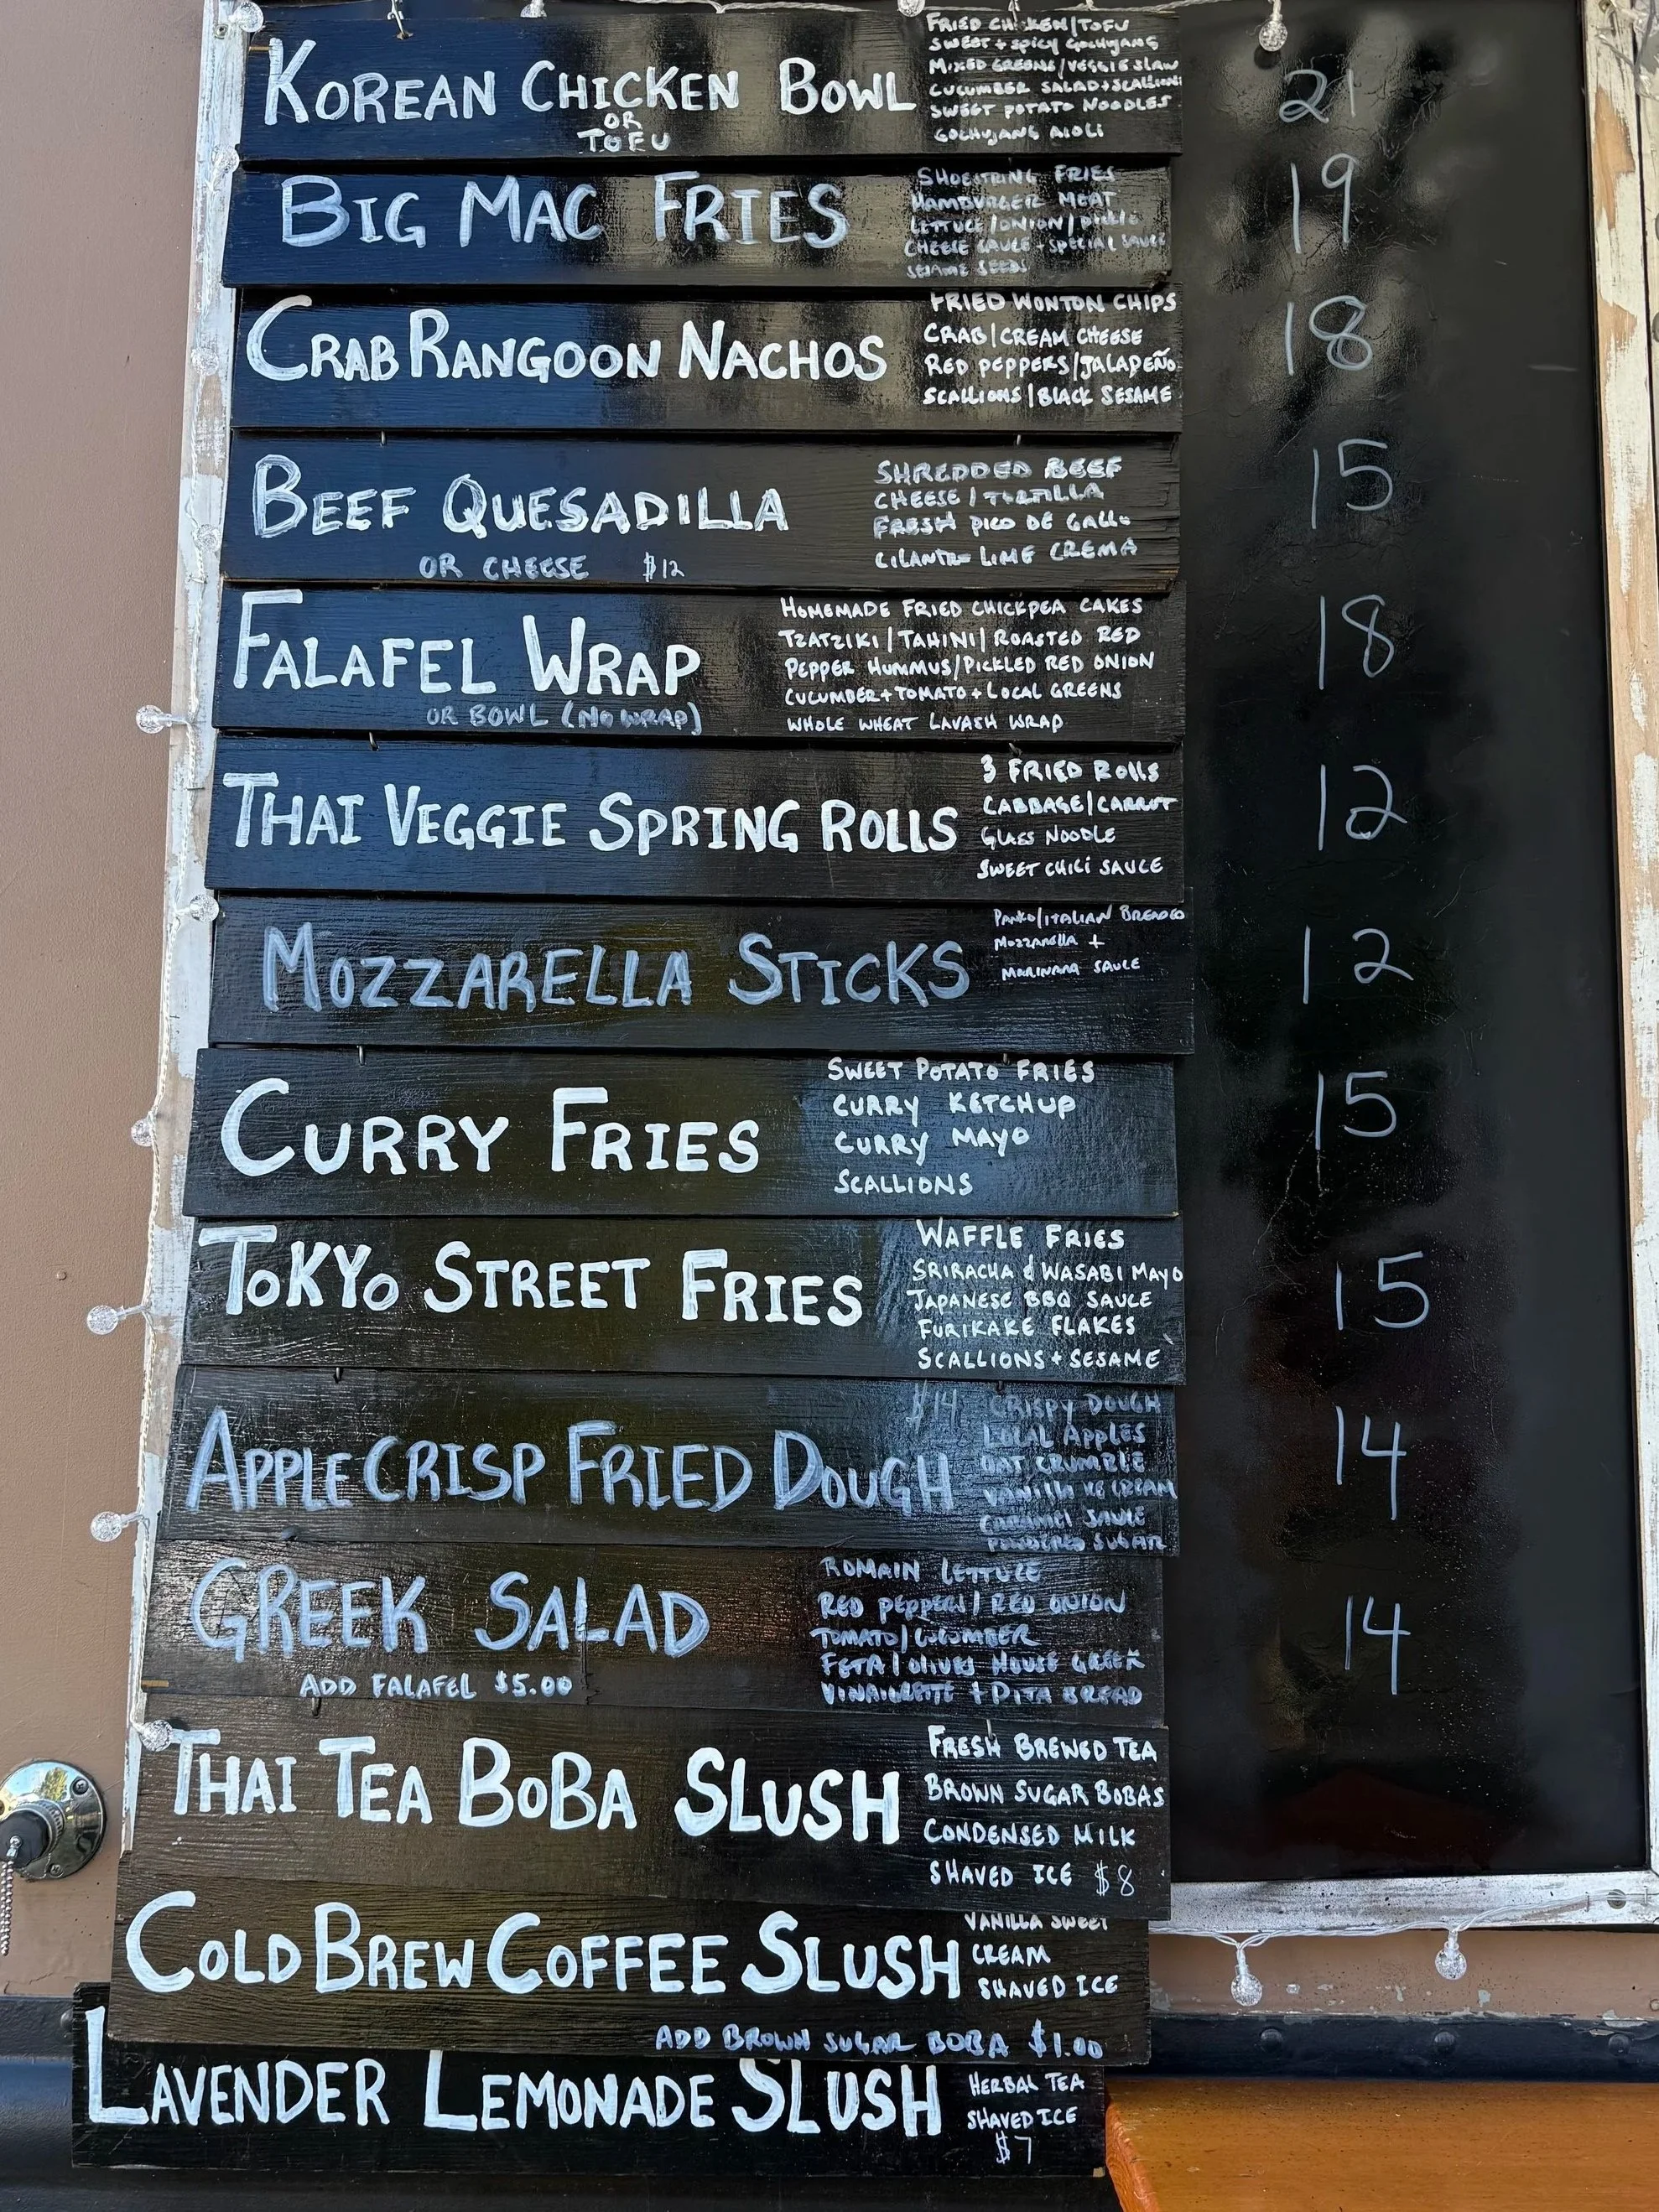 KOREAN CHICKEN BOWL
OR
TOFU
FRIED CHICKEN/TOFU
SWEET + SPICY GOCHUJANG
MIXED GREENS/VEGGIE SLAW
CUCUMBER SALAD+SCALLIONS
SWEET POTATO NOODLES
GOCHUJANG AIOLI
21
BIG MAC FRIES
SHOESTRING FRIES
HAMBURGER MEAT
LETTUCE/ONION/PICKLE
CHEESE SAUCE - SPECIAL SAUCE
SESAME SEEDS
19
CRAB RANGOON NACHOS
FRIED WONTON CHIPS
CRAB/CREAM CHEESE
RED PEPPERS/JALAPEÑO
SCALLIONS/BLACK SESAME
18
BEEF QUESADILLA
OR CHEESE $12
SHREDDED BEEF
CHEESE/TORTILLA
FRESH PICO DE GALLO
CILANTRO LIME CREMA
15
FALAFEL WRAP
OR BOWL (NO WRAP)
HOMEMADE FRIED CHICKPEA CAKES
TZATZIKI/TAHINI/ROASTED RED
PEPPER HUMMUS/PICKLED RED ONION
CUCUMBER+TOMATO+LOCAL GREENS
WHOLE WHEAT LAVASH WRAP
18
THAI VEGGIE SPRING ROLLS
3 FRIED ROLLS
CABBAGE/CARROT
GLASS NOODLE
SWEET CHILI SAUCE
12
MOZZARELLA STICKS
PANKO/ITALIAN BREADED
MOZZARELLA +
MARINARA SAUCE
12
CURRY FRIES
SWEET POTATO FRIES
CURRY KETCHUP
CURRY MAYO
SCALLIONS
15
TOKYO STREET FRIES
WAFFLE FRIES
SRIRACHA & WASABI MAYO
JAPANESE BBQ SAUCE
FURIKAKE FLAKES
SCALLIONS + SESAME
15
APPLE CRISP FRIED DOUGH
$14 CRISPY DOUGH
LOCAL APPLES
OAT CRUMBLE
VANILLA ICE CREAM
CARAMEL SAUCE
POWDERED SUGAR
14
GREEK SALAD
ADD FALAFEL $5.00
ROMAIN LETTUCE
RED PEPPERS/RED ONION
TOMATO/CUCUMBER
FETA/OLIVES HOUSE GREEK
VINAIGRETTE + PITA BREAD
14
THAI TEA BOBA SLUSH
FRESH BREWED TEA
BROWN SUGAR BOBAS
CONDENSED MILK
SHAVED ICE $8
COLD BREW COFFEE SLUSH
VANILLA SWEET
CREAM
SHAVED ICE
ADD BROWN SUGAR BOBA $1.00
LAVENDER LEMONADE SLUSH
HERBAL TEA
SHAVED ICE
$7